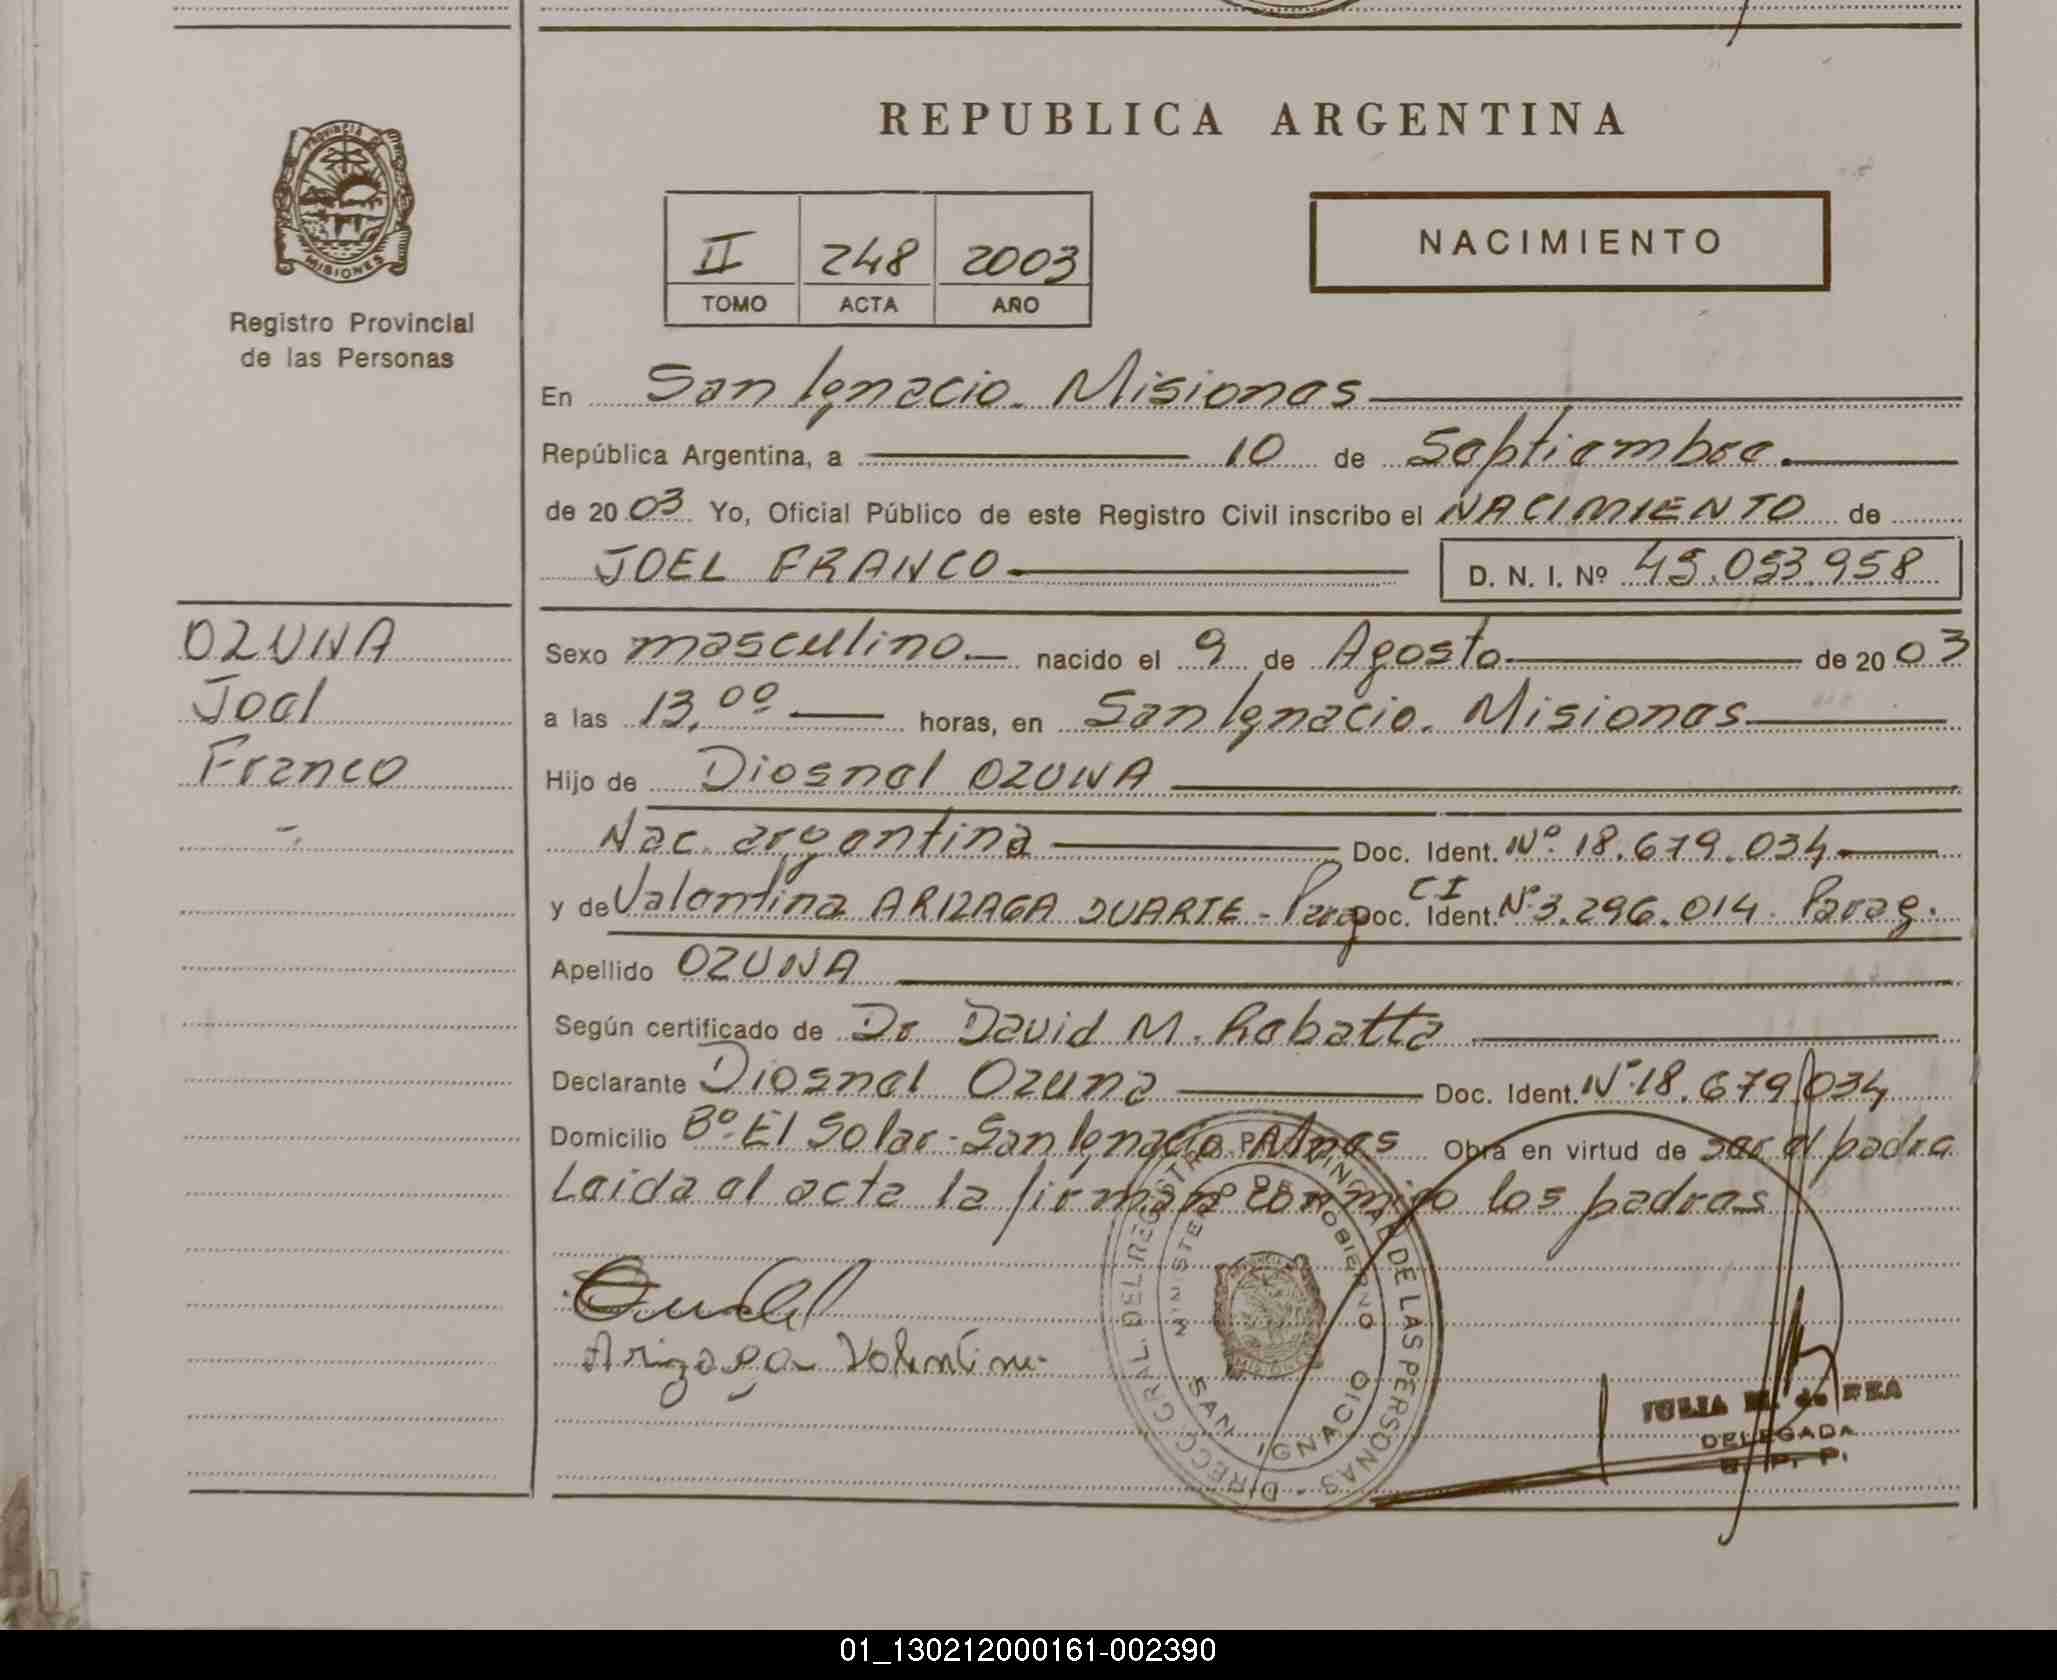 REPUBLICA ARGENTINA
PROVINCIA DE
MISIONES
Registro Provincial
de las Personas
II 248 2003
TOMO ACTA AÑO
NACIMIENTO
En San Ignacio. Misiones
República Argentina, a 10 de Septiembre.
de 2003 Yo, Oficial Público de este Registro Civil inscribo el NACIMIENTO de
JOEL FRANCO D. N. I. Nº 45.053.958
OZUNA
Joel
Franco
Sexo masculino. nacido el 9 de Agosto de 2003
a las 13,00 horas, en San Ignacio. Misiones
Hijo de Diosnel OZUNA
Nac. argentina Doc. Ident. Nº 18.679.034
y de Valentina ARIZAGA DUARTE - Parag Doc. CI Ident. Nº 3.296.014. Parag.
Apellido OZUNA
Según certificado de Dr David M. Rabatta
Declarante Diosnel Ozuna Doc. Ident. Nº 18.679.034
Domicilio Bº El Solar - San Ignacio Mnes Obra en virtud de ser el padre
Leida el acta la firman conmigo los padres
Arizaga Valentina
DIRECC. GRAL. DEL REGISTRO PROVINCIAL DE LAS PERSONAS
MINISTERIO DE GOBIERNO
SAN IGNACIO
JULIA M. de REA
DELEGADA
R. P. P.
01_130212000161-002390